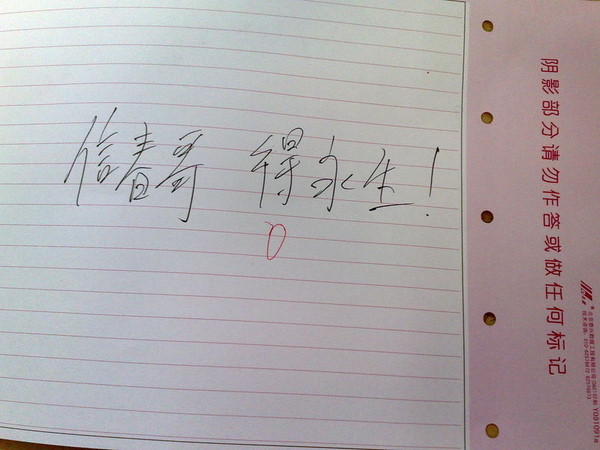 信春哥 得永生!
0
阴影部分请勿作答或做任何标记